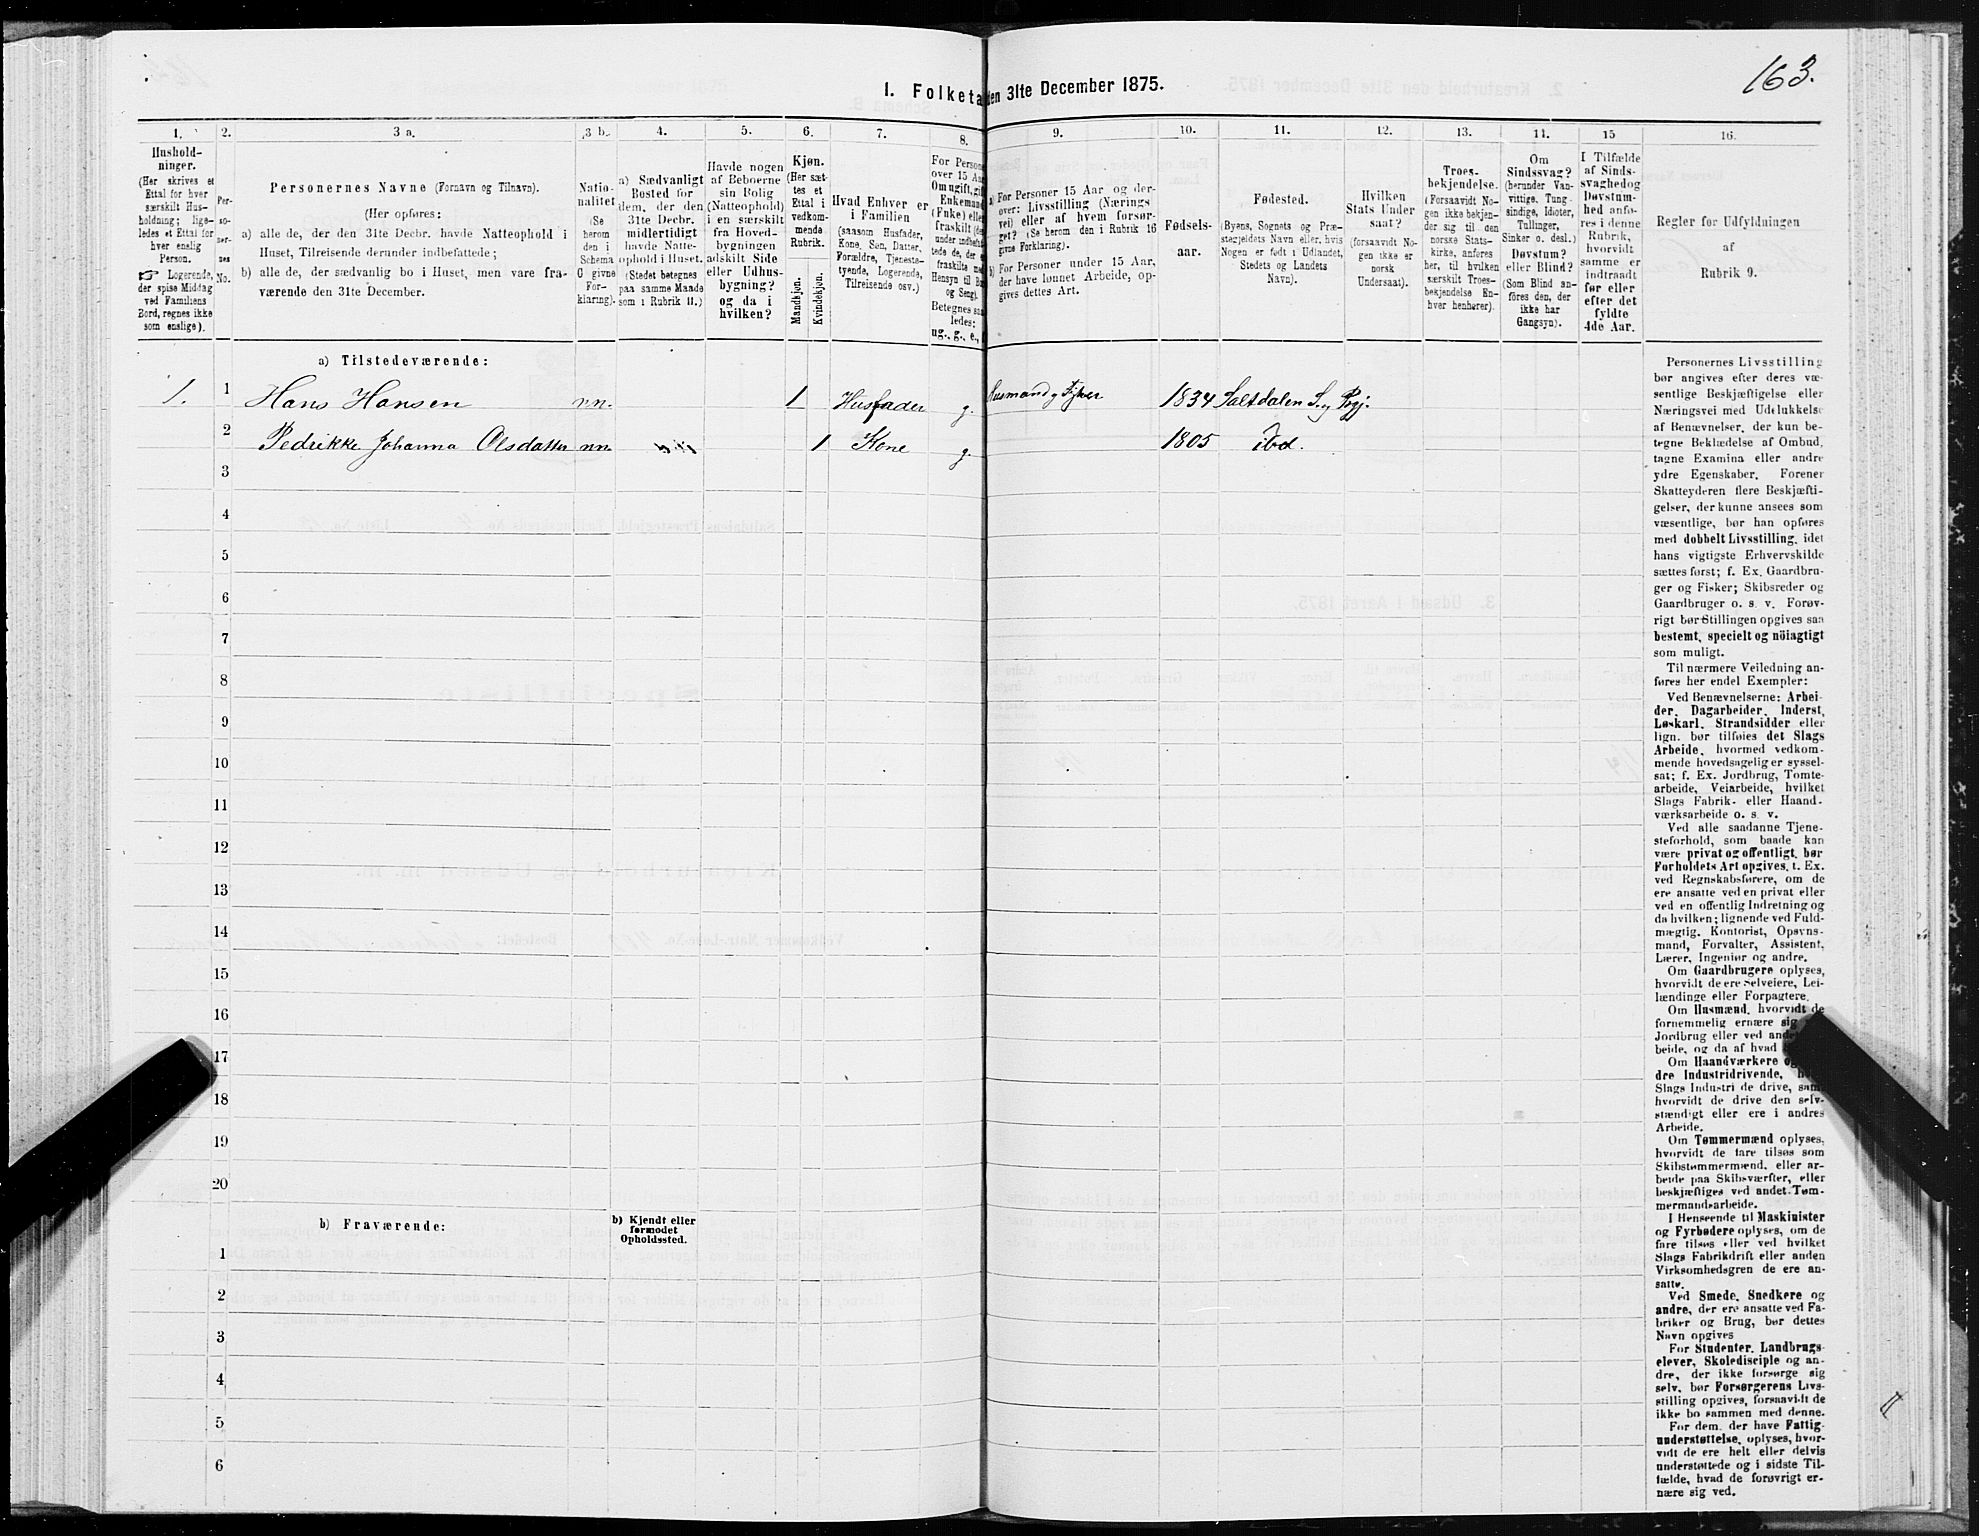 163.
1. Folketa den 31te December 1875.
1. 2. 3 a. 3 b. 4. 5. 6. 7. 8. 9. 10. 11. 12. 13. 14. 15 16.
Hushold-
ninger.
(Her skrives et
Ettal for hver
særskilt Hus-
holdning; lige-
ledes et Ettal for
hver enslig
Person.
☞ Logerende,
der spise Middag
ved Familiens
Bord, regnes ikke
som enslige).
Per-
so-
ner-
nes
No.
Personernes Navne (Fornavn og Tilnavn).
(Her opføres:
a) alle de, der den 31te Decbr. havde Natteophold i
Huset, Tilreisende derunder indbefattede;
b) alle de, der sædvanlig bo i Huset, men vare fra-
værende den 31te December.
Natio-
nalitet
(Se
herom
den i
Schema
O givne
For-
klaring).
a) Sædvanligt
Bosted for
dem, der den
31te Decbr.
midlertidigt
havde Natte-
ophold i Huset.
(Stedet betegnes
paa samme Maade
som i Rubrik 11.)
Havde nogen
af Beboerne
sin Bolig
(Natteophold)
i en særskilt
fra Hoved-
bygningen
adskilt Side
eller Udhus-
bygning?
og da i
hvilken?
Kjøn.
(Her sæt-
tes et
Ettal i
vedkom-
mende
Rubrik.
Mandkjøn.
Kvindekjøn.
Hvad Enhver er
i Familien
(saasom Husfader,
Kone, Søn, Datter,
Forældre, Tjeneste-
tyende, Logerende,
Tilreisende osv.)
For Persone
over 15 Aa
Om ugift, gif
Enkemand
(Enke) elle
fraskilt (de
under indbefat
tede de, der e
fraskilte me
Hensyn til Bo
og Seng).
Betegnes saa
ledes:
ug., g., e.,
a) For Personer 15 Aar og der-
over: Livsstilling (Nærings
vei) eller af hvem forsør-
get? (Se herom den i Rubrik 16
givne Forklaring).
b) For Personer under 15 Aar,
der have lønnet Arbeide, op-
gives dettes Art.
Fødsels-
aar.
Fødested.
(Byens, Sognets og Præ-
stegjeldets Navn eller, hvis
Nogen er født i Udlandet,
Stedets og Landets
Navn).
Hvilken
Stats Under
saat?
(forsaavidt No-
gen ikke er
norsk
Undersaat).
Troes-
bekjendelse.
(Forsaavidt No-
gen ikke bekjen-
der sig til den
norske Stats-
kirke, anføres
her, til hvilken
særskilt Troes-
bekjendelse En-
hver henhører).
Om
Sindssvag?
(herunder Van-
vittige, Tung-
sindige, Idioter,
Tullinger,
Sinker o. desl.)
Døvstum?
eller Blind?
(Som Blind an-
føres den, der
ikke har
Gangsyn).
I Tilfælde
af Sinds-
svaghed og
Døvstum-
hed anfø-
res i denne
Rubrik,
hvorvidt
samme er
indtraadt
før eller
efter det
fyldte
4de Aar.
Regler for Udfyldningen
af
Rubrik 9.
a) Tilstedeværende:
1. 1 Hans Hansen nn. 1 Husfader g. Husmand og Fisker 1834 Saltdalen S. og Pgj.
2 Pedrikke Johanna Olsdatter nn. 1 Kone g. 1805 ibd.
3
4
5
6
7
8
9
10
11
12
13
14
15
16
17
18
19
20
b) Fraværende:
b) Kjendt eller
formodet
Opholdssted.
1
2
3
4
5
6
Personernes Livsstilling
bør angives efter deres væ-
sentlige Beskjæftigelse eller
Næringsvei med Udelukkelse
af Benævnelser, der kun be-
tegne Beklædelse af Ombud,
tagne Examina eller andre
ydre Egenskaber. Forener
Skatteyderen flere Beskjæfti-
gelser, der kunne ansees som
væsentlige, bør han opføres
med dobbelt Livsstilling, idet
hans vigtigste Erhvervskilde
sættes først; f. Ex. Gaardbru-
ger og Fisker; Skibsreder og
Gaardbruger o. s. v. Forøv-
rigt bør Stillingen opgives saa
bestemt, specielt og nöiagtigt
som muligt.
Til nærmere Veiledning an-
føres her endel Exempler:
Ved Benævnelserne: Arbei-
der, Dagarbeider, Inderst,
Løskarl, Strandsidder eller
lign. bør tilføies det Slags
Arbeide, hvormed vedkom-
mende hovedsagelig er syssel-
sat; f. Ex. Jordbrug, Tomte-
arbeide, Veiarbeide, hvilket
Slags Fabrik- eller Haand-
værksarbeide o. s. v.
Ved alle saadanne Tjene-
steforhold, som baade kan
være privat og offentligt, bør
Forholdets Art opgives, t. Ex.
ved Regnskabsførere, om de
ere ansatte ved en privat eller
ved en offentlig Indretning og
da hvilken; lignende ved Fuld-
mægtig, Kontorist, Opsyns-
mand, Forvalter, Assistent,
Lærer, Ingeniør og andre.
Om Gaardbrugere oplyses,
hvorvidt de ere Selveiere, Lei-
lændinge eller Forpagtere.
Om Husmænd, hvorvidt de
fornemmelig ernære sig
Jordbrug eller ved andet
beide, og da af hvad
Om Haandværkere og
dre Industridrivende,
Slags Industri de drive, samt
hvorvidt de drive den selv-
stændigt eller ere i andres
Arbeide.
Om Tømmermænd oplyses,
hvorvidt de fare tilsøs som
Skibstømmermænd, eller ar-
beide paa Skibsværfter, eller
beskjæftiges ved andet Tøm-
mermandsarbeide.
I Henseende til Maskinister
og Fyrbødere oplyses, om de
fare tilsøs eller ved hvilket
Slags Fabrikdrift eller anden
Virksomhedsgren de ere an-
satte.
Ved Smede, Snedkere og
andre, der ere ansatte ved Fa-
briker og Brug, bør dettes
Navn opgives
For Studenter, Landbrugs-
elever, Skoledisciple og an-
dre, der ikke forsørge sig
selv, bør Forsørgerens Livs-
stilling opgives, forsaavidt de
ikke bo sammen med denne.
For dem, der have Fattig-
understøttelse, oplyses, hvor-
vidt de ere helt eller delvis
understøttede og i sidste Til-
fælde, hvad de forøvrigt er-
nære sig ved.